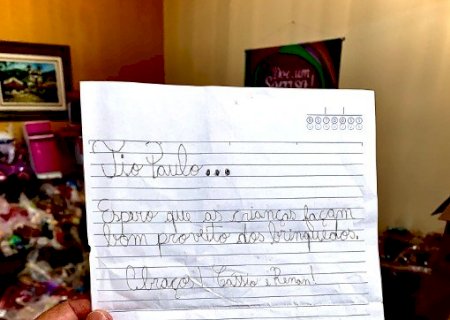 Doe um
Sorriso!
Tio Paulo...
Espero que as crianças façam
bom proveito dos brinquedos.
Abraços! Cássio e Renan!